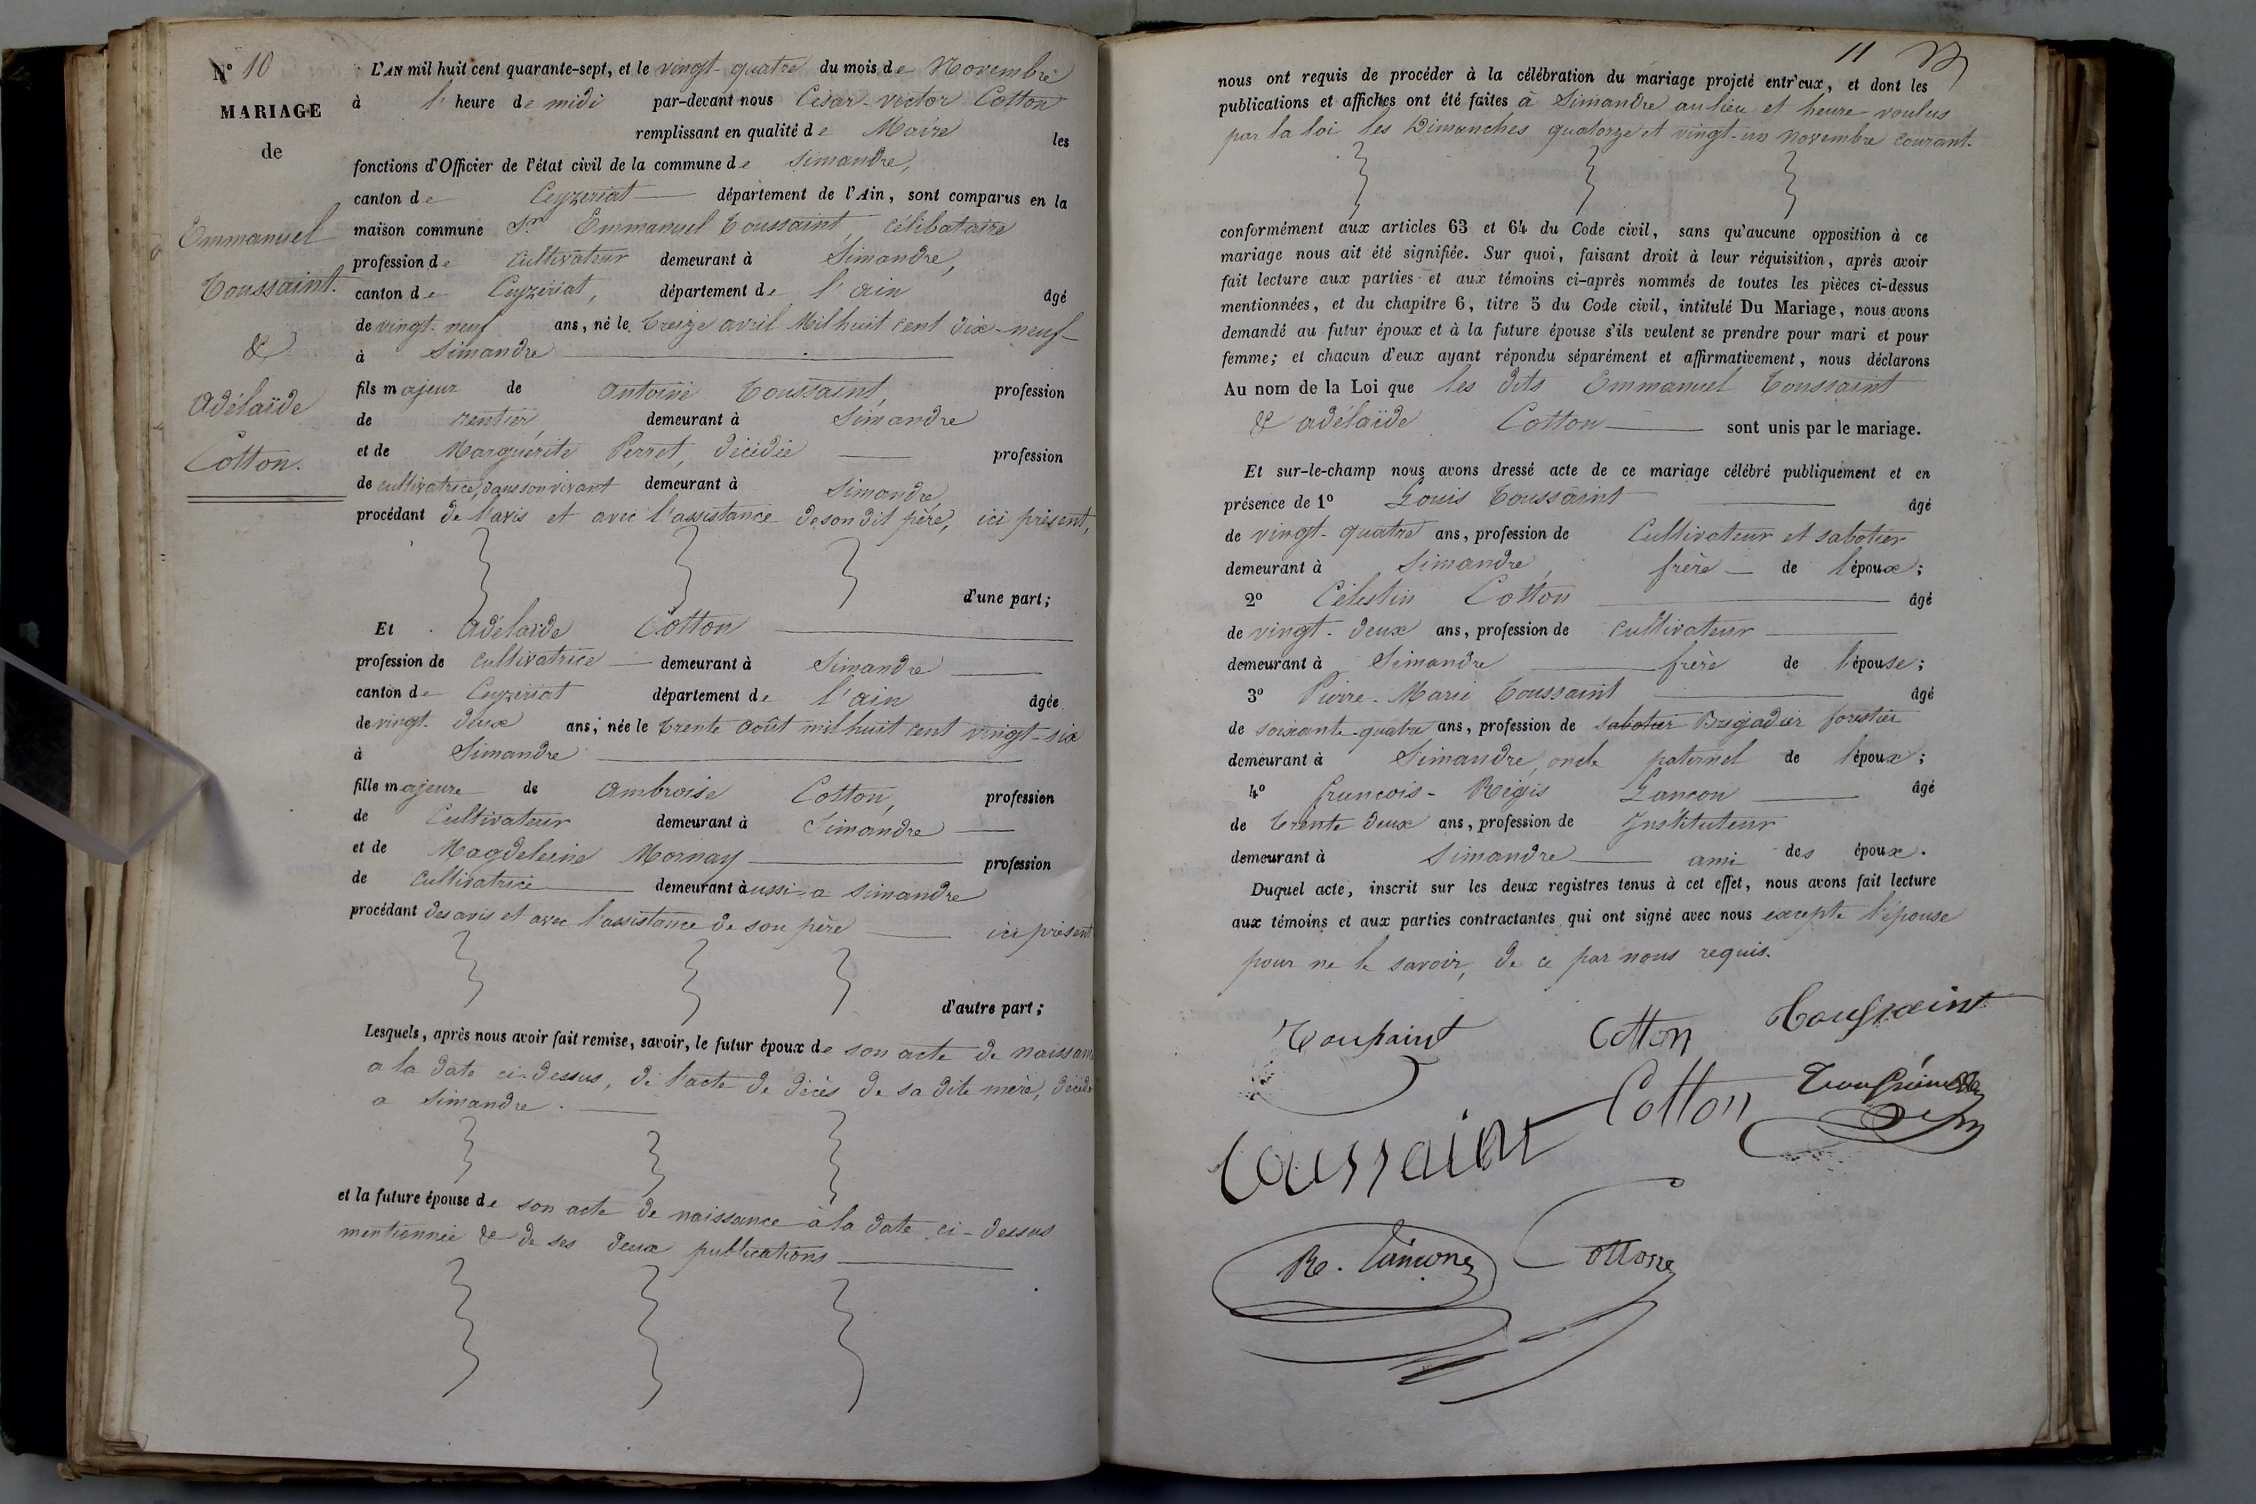 N° 10
MARIAGE
de
Emmanuel
Toussaint.
&
Adélaïde
Cotton.
L'AN mil huit cent quarante-sept, et le vingt-quatre du mois de Novembre
à l'heure de midi par-devant nous César-victor Cotton
remplissant en qualité de Maire les
fonctions d'Officier de l'état civil de la commune de Simandre,
canton de Ceyzeriat département de l'Ain, sont comparus en la
maison commune Sr Emmanuel Toussaint, célibataire
profession de cultivateur demeurant à Simandre,
canton de Ceyzeriat, département de l'ain âgé
de vingt-neuf ans, né le treize avril Mil huit cent dix-neuf
à Simandre
fils majeur de antoine Toussaint, profession
de rentier, demeurant à Simandre
et de Marguerite Perret, décédée profession
de cultivatrice, dans son vivant demeurant à Simandre
procédant de l'avis et avec l'assistance de son dit père, ici présent,
d'une part;
Et Adélaïde Cotton
profession de cultivatrice demeurant à Simandre
canton de Ceyzeriat département de l'ain âgée
de vingt-deux ans, née le trente Août mil huit cent vingt-six
à Simandre
fille majeure de ambroise Cotton, profession
de Cultivateur demeurant à Simandre
et de Magdeleine Mornay profession
de Cultivatrice demeurant aussi a Simandre
procédant des avis et avec l'assistance de son père ici présent
d'autre part;
Lesquels, après nous avoir fait remise, savoir, le futur époux de son acte de naissan
a la date ci-dessus, de l'acte de décès de sa dite mère, décédé
a Simandre.
et la future épouse de son acte de naissance à la date ci-dessus
mentionnée & de ses deux publications
11
nous ont requis de procéder à la célébration du mariage projeté entr'eux, et dont les
publications et affiches ont été faites à Simandre au lieu et heure voulus
par la loi les Dimanches quatorze et vingt-un novembre courant.
conformément aux articles 63 et 64 du Code civil, sans qu'aucune opposition à ce
mariage nous ait été signifiée. Sur quoi, faisant droit à leur réquisition, après avoir
fait lecture aux parties et aux témoins ci-après nommés de toutes les pièces ci-dessus
mentionnées, et du chapitre 6, titre 5 du Code civil, intitulé Du Mariage, nous avons
demandé au futur époux et à la future épouse s'ils veulent se prendre pour mari et pour
femme; et chacun d'eux ayant répondu séparément et affirmativement, nous déclarons
Au nom de la Loi que les dits Emmanuel Toussaint
& adélaïde Cotton sont unis par le mariage.
Et sur-le-champ nous avons dressé acte de ce mariage célébré publiquement et en
présence de 1° Louis Toussaint âgé
de vingt-quatre ans, profession de Cultivateur et sabotier
demeurant à Simandre, frère de l'époux;
2° Célestin Cotton âgé
de vingt-deux ans, profession de cultivateur
demeurant à Simandre frère de l'épouse;
3° Pierre-Marie Toussaint âgé
de soixante-quatre ans, profession de sabotier Brigadier forestier
demeurant à Simandre, oncle paternel de l'époux;
4° francois-Régis Lancon âgé
de trente deux ans, profession de Instituteur
demeurant à Simandre ami des époux.
Duquel acte, inscrit sur les deux registres tenus à cet effet, nous avons fait lecture
aux témoins et aux parties contractantes qui ont signé avec nous excepte l'épouse
pour ne le savoir, de ce par nous requis.
Toussaint Cotton Toussaint
Cotton
Toussaint
R. Lançon Cotton